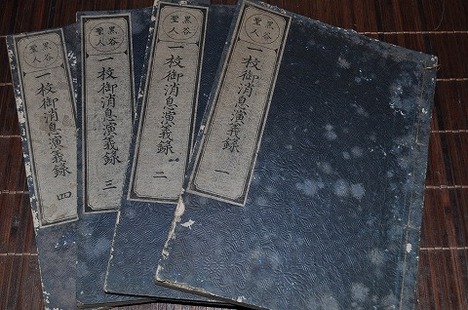 黒谷
聖人
一枚御消息演義録 一
黒谷
聖人
一枚御消息演義録 二
黒谷
聖人
一枚御消息演義録 三
黒谷
聖人
一枚御消息演義録 四